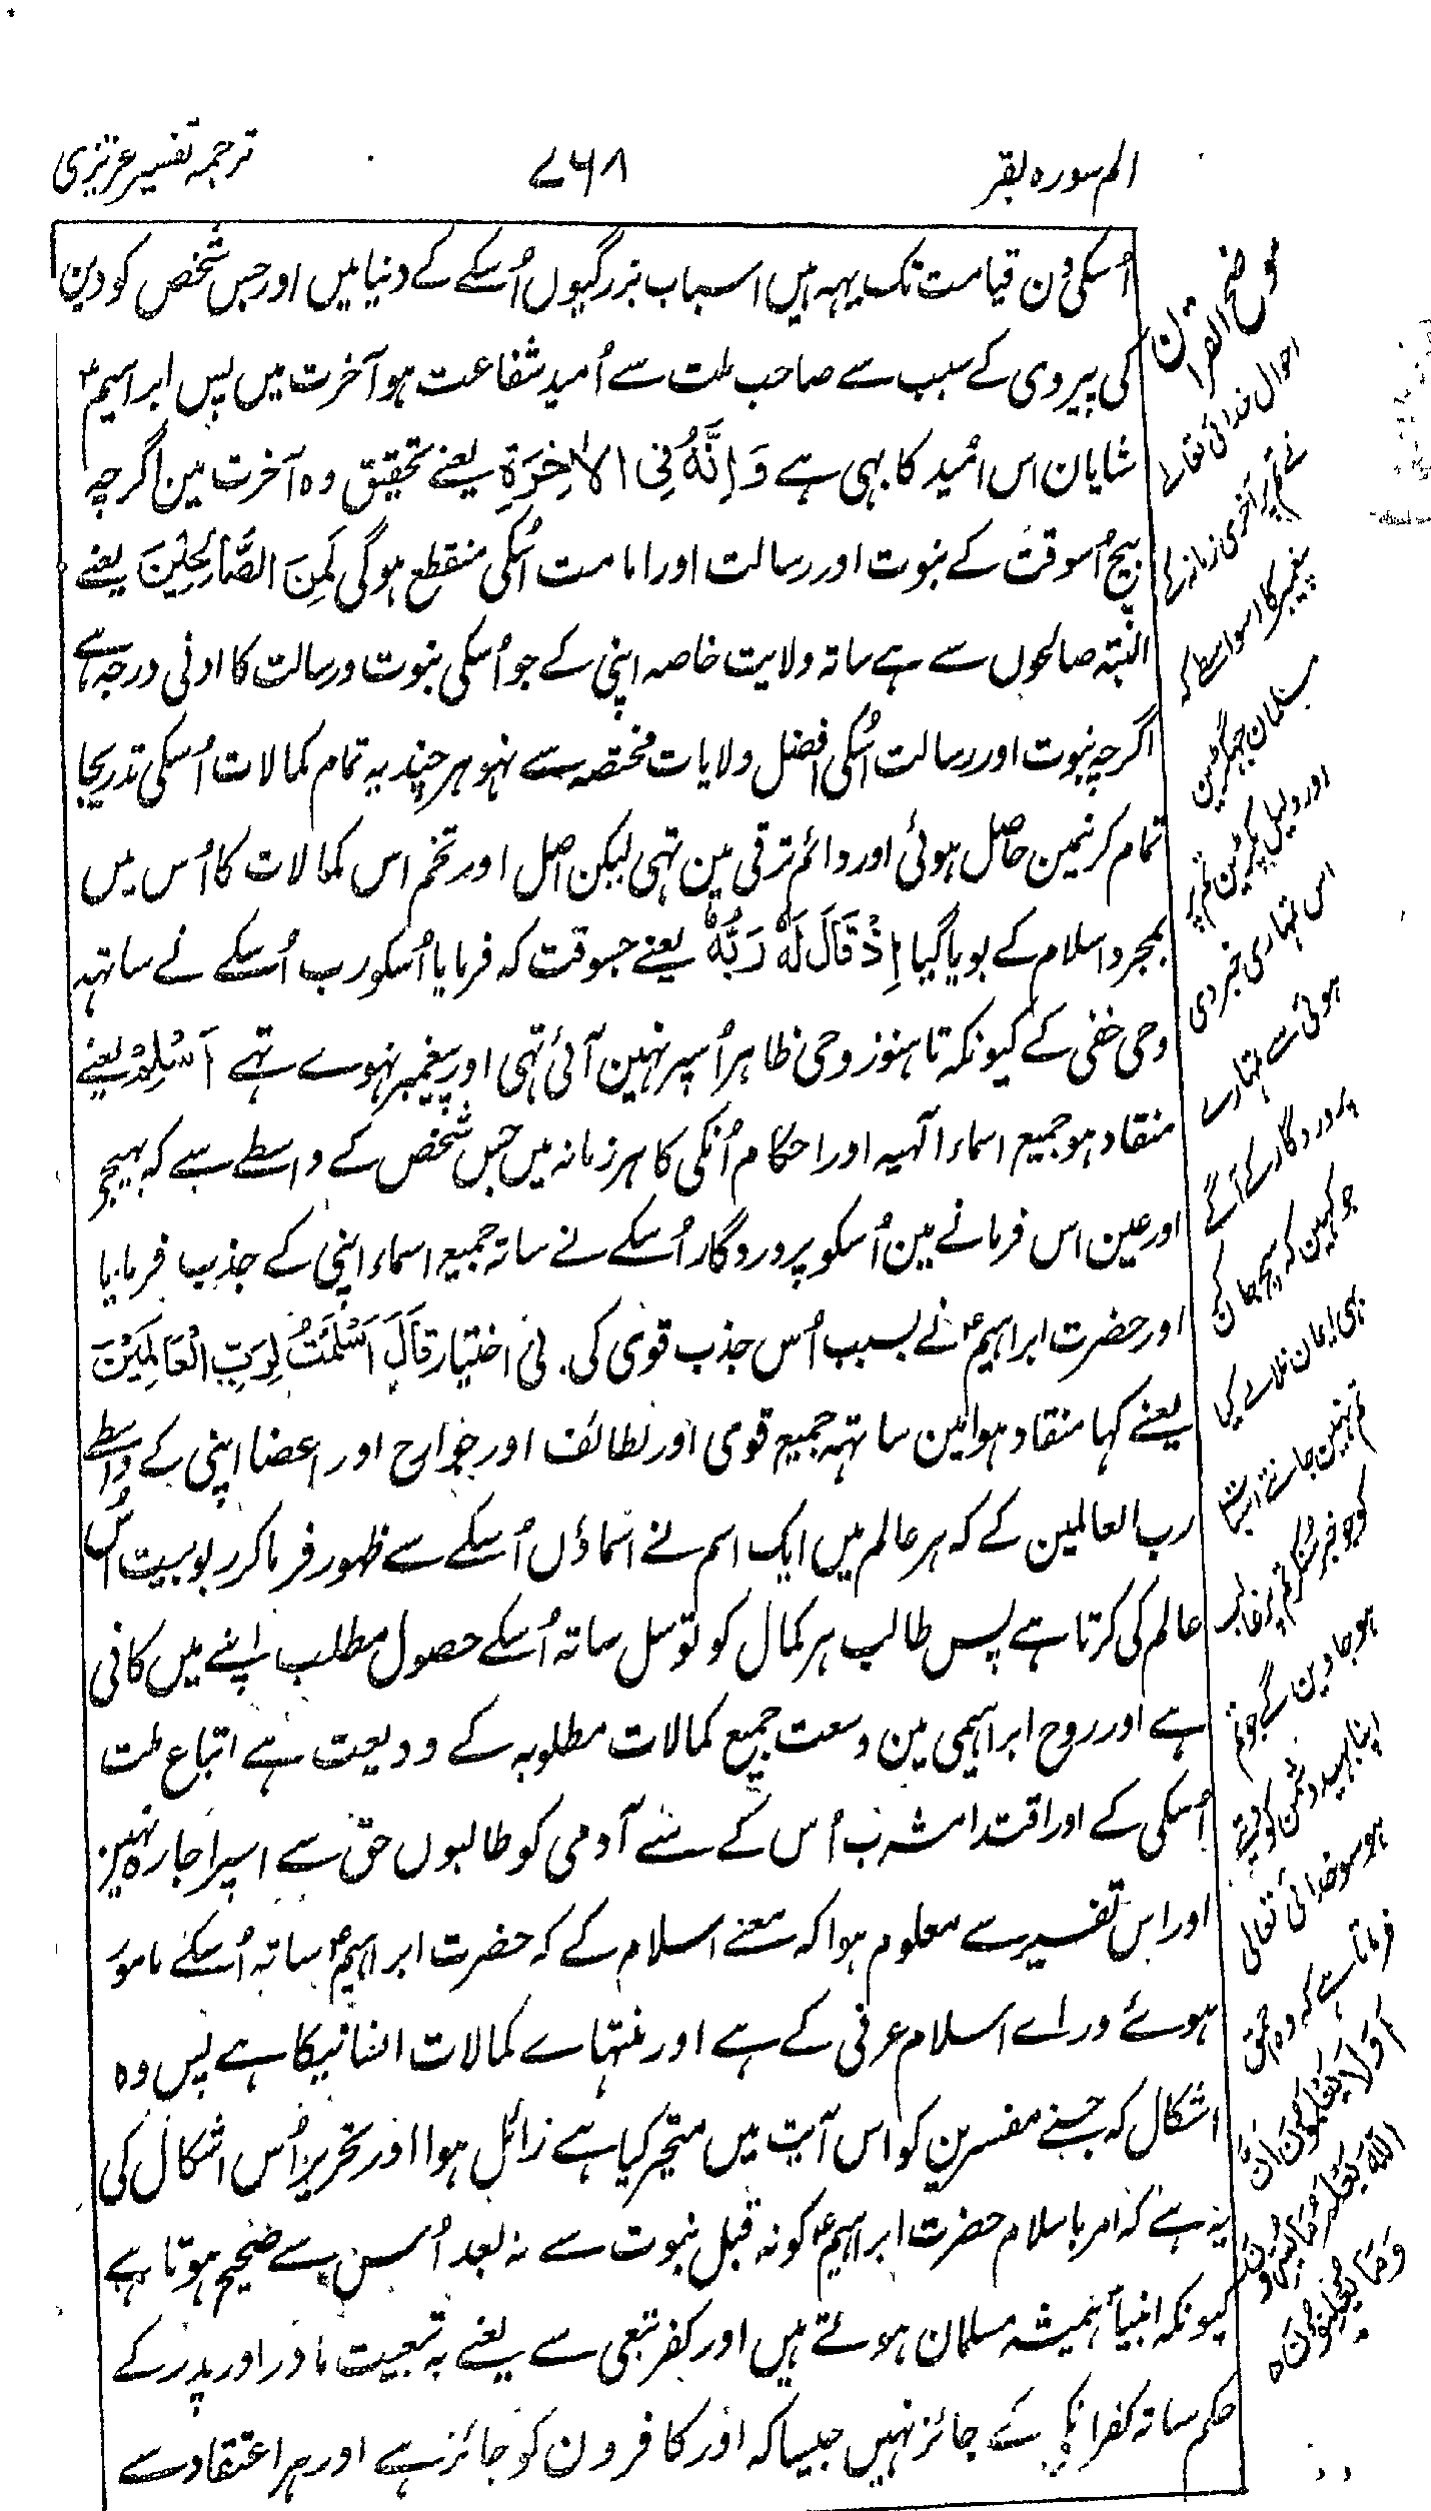 الم سوره بقر
۷۶۸
ترجمہ تفسیر عزیزی
اُسکی دن قیامت تک یہہ ہیں اسباب بزرگیوں اُسکے کے دنیا میں اور جس شخص کو دین
کی پیروی کے سبب سے صاحب ملت سے اُمید شفاعت ہو آخرت میں پس ابراہیمؑ
شایان اس اُمید کا بہی ہے وَاِنَّهُ فِی الاٰخِرَةِ یعنے تحقیق وہ آخرت مین اگرچہ
بیچ اُسوقت کے نبوت اور رسالت اور امامت اُسکی منقطع ہوگی لَمِنَ الصَّالِحِیْنَ یعنے
البتہ صالحوں سے ہے ساتہ ولایت خاصہ اپنی کے جو اُسکی نبوت و رسالت کا ادنی درجہ ہے
اگرچہ نبوت اور رسالت اُسکی افضل ولایات مختصہ سے نہو ہر چند یہ تمام کمالات اُسکی تدریجا
تمام کرنیمین حاصل ہوئی اور دائم ترقی مین تہی لیکن اصل اور تخم اس کمالات کا اُس میں
بمجرد اسلام کے بویا گیا اِذْ قَالَ لَهٗ رَبُّهٗ یعنے جسوقت کہ فرمایا اُسکو رب اُسکے نے ساتہہ
وحی خفی کے کیونکہ تا ہنوز وحی ظاہر اُسپر نہین آئی تہی اور پیغمبر نہوے تہے اَسْلِمْ یعنے
منقاد ہو جمیع اسماء الٓہیہ اور احکام اُنکی کا ہر زمانہ میں جس شخص کے واسطے سے کہ بہیجو
اور عین اس فرمانے مین اُسکو پروردگار اُسکے نے ساتہ جمیع اسماء اپنی کے جذب فرمایا
اور حضرت ابراہیمؑ نے بسبب اُس جذب قوی کی بی اختیار قَالَ اَسْلَمْتُ لِرَبِّ الْعَالَمِیْنَ
یعنے کہا منقاد ہوا مین ساتہہ جمیع قوی اور لطائف اور جوارح اور اعضا اپنی کے واسطے
رب العالمین کے کہ ہر عالم میں ایک اسم نے اسماؤں اُسکے سے ظہور فرما کر ربوبیت اُس
عالم کی کرتا ہے پس طالب ہر کمال کو توسل ساتہ اُسکے حصول مطلب اپنے میں کافی
ہے اور روح ابراہیمی مین وسعت جمیع کمالات مطلوبہ کے ودیعت ہے اتباع ملت
اُسکی کے اور اقتدا مشرب اُس کے سے آدمی کو طالبوں حق سے اسپر اجارہ نہین
اور اس تفسیر سے معلوم ہوا کہ معنے اسلام کے کہ حضرت ابراہیمؑ ساتہ اُسکے مامور
ہوئے وراے اسلام عرفی کے ہے اور منتہاے کمالات انسانیکا ہے پس وہ
اشکال کہ جسنے مفسرین کو اس آیت میں متحیر کیا ہے زائل ہوا اور تحریر اُس اشکال کی
یہ ہے کہ امر باسلام حضرت ابراہیمؑ کو نہ قبل نبوت سے نہ بعد اُسس سے صحیح ہوتا ہے
کیونکہ انبیاؑ ہمیشہ مسلمان ہوئے ہیں اور کفر تبعی سے یعنے بہ تبعیت مادر اور پدر کے
حکم ساتہ کفر انکی کے جائز نہیں جیسا کہ اور کافرون کو جائز ہے اور ہر اعتقاد سے
موضح القران
احوال خدائی تعالی
نے تم پر آخری زمانہ کے
پیغمبر کا اسواسطے کہ
مسلمان جہگڑین
اور دلیل پکڑین تم پر
اس تمہاری خبر دی
ہوئی سے تمہارے
پروردگار کے آگے
جو کہین کہ سچ جان کے
بہی ایمان نلائے کیا
تم نہین جانتے
کو جو خبر منکر تم پر غالب
ہو جاوین گے جو تم
اپنا بہید دشمن کو دیتے
ہو سو خدائی تعالی
فرماتا ہے کہ وہ احمق
اَوَلَا یَعْلَمُوْنَ اَنَّ
اللّٰهَ یَعْلَمُ مَا یُسِرُّوْنَ
وَمَا یُعْلِنُوْنَ ہ